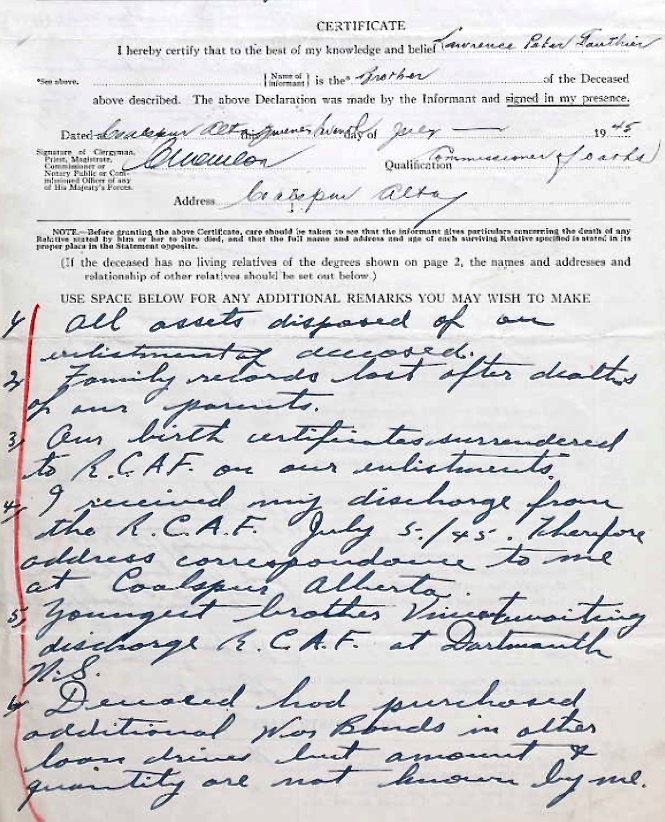 CERTIFICATE
I hereby certify that to the best of my knowledge and belief Lawrence Peter Gauthier
*See above. {Name of informant} is the* Brother of the Deceased
above described. The above Declaration was made by the Informant and signed in my presence.
Dated at Coalspur Alta this day of July 1945
Signature of Clergyman, Priest, Magistrate, Commissioner or Notary Public or Commissioned Officer of any of His Majesty's Forces.
Qualification Commissioner of oaths
Address Coalspur Alta
NOTE.—Before granting the above Certificate, care should be taken to see that the informant gives particulars concerning the death of any
Relative stated by him or her to have died, and that the full name and address and age of each surviving Relative specified is stated in its
proper place in the Statement opposite.
(If the deceased has no living relatives of the degrees shown on page 2, the names and addresses and
relationship of other relatives should be set out below.)
USE SPACE BELOW FOR ANY ADDITIONAL REMARKS YOU MAY WISH TO MAKE
1/ All assets disposed of on
enlistment of deceased.
2/ Family records lost after deaths
of our parents.
3/ Our birth certificates surrendered
to R.C.A.F. on our enlistments.
4/ I received my discharge from
the R.C.A.F. July 5./45. Therefore
address correspondence to me
at Coalspur Alberta.
5/ Youngest brother Vincent waiting
discharge R.C.A.F. at Dartmouth
N.S.
6/ Deceased had purchased
additional War Bonds in other
loan drives but amount &
quantity are not known by me.